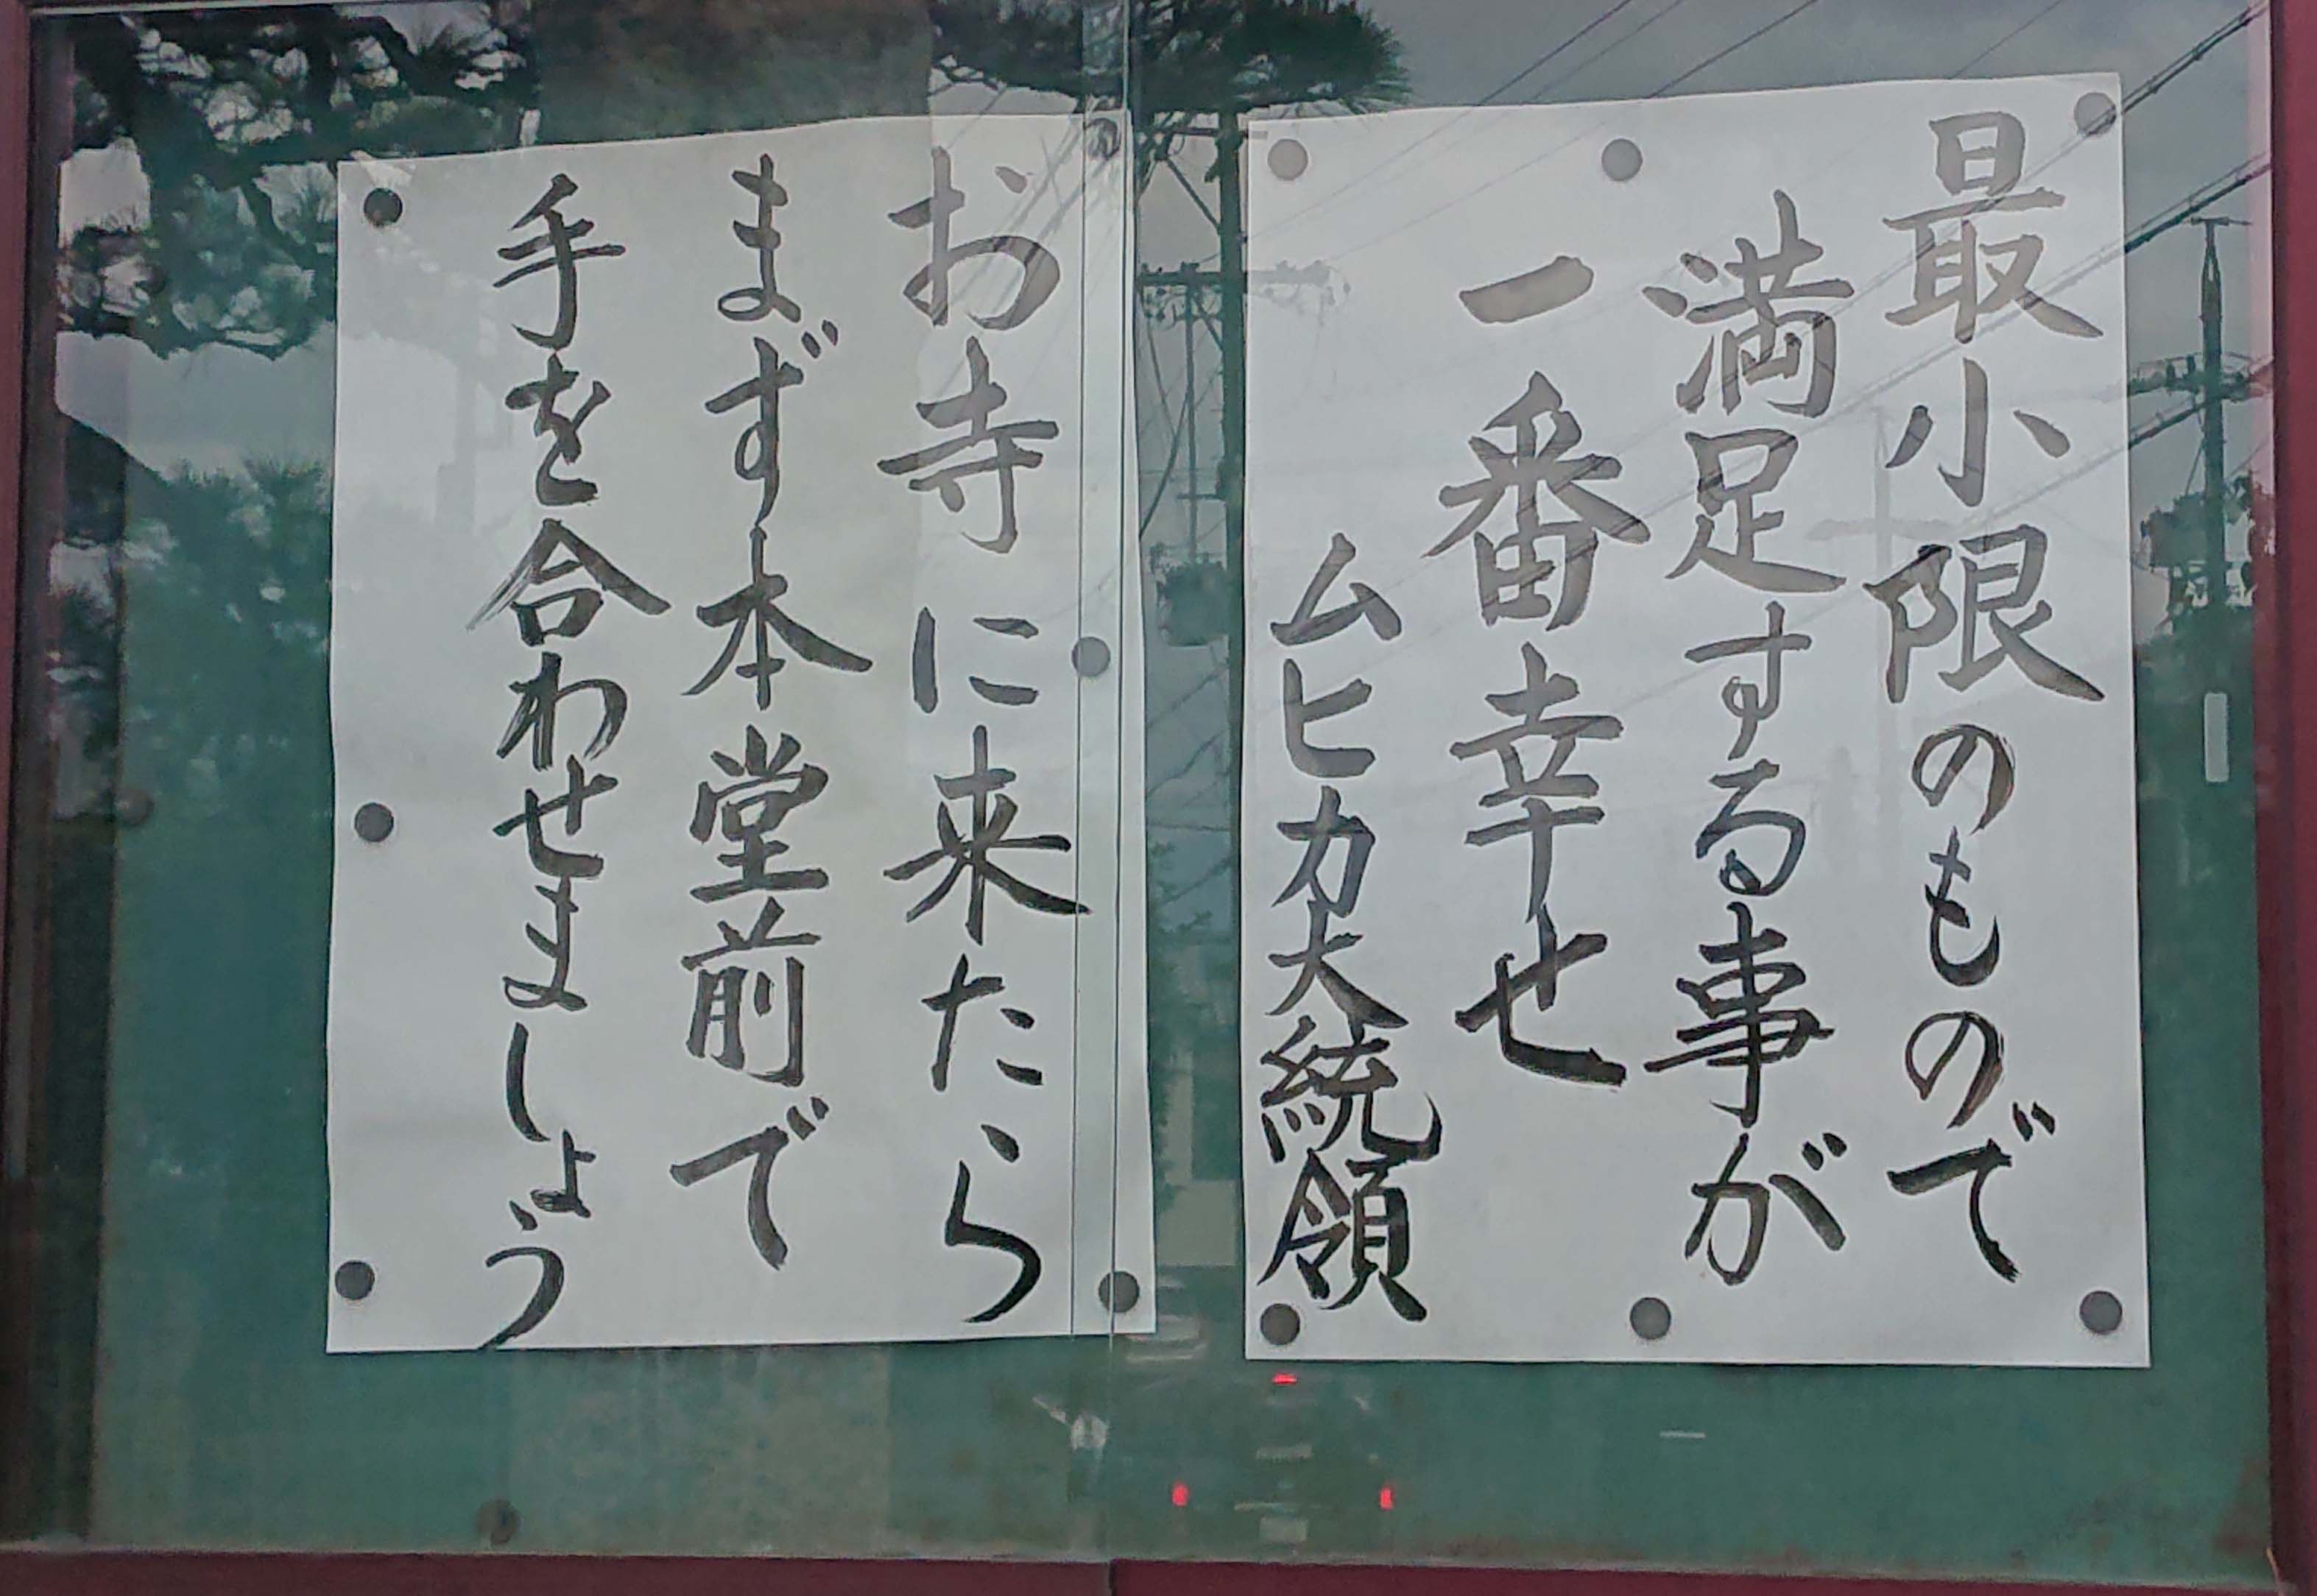 最小限のもので
満足する事が
一番幸せ
ムヒカ大統領
お寺に来たら
まず本堂前で
手を合わせましょう